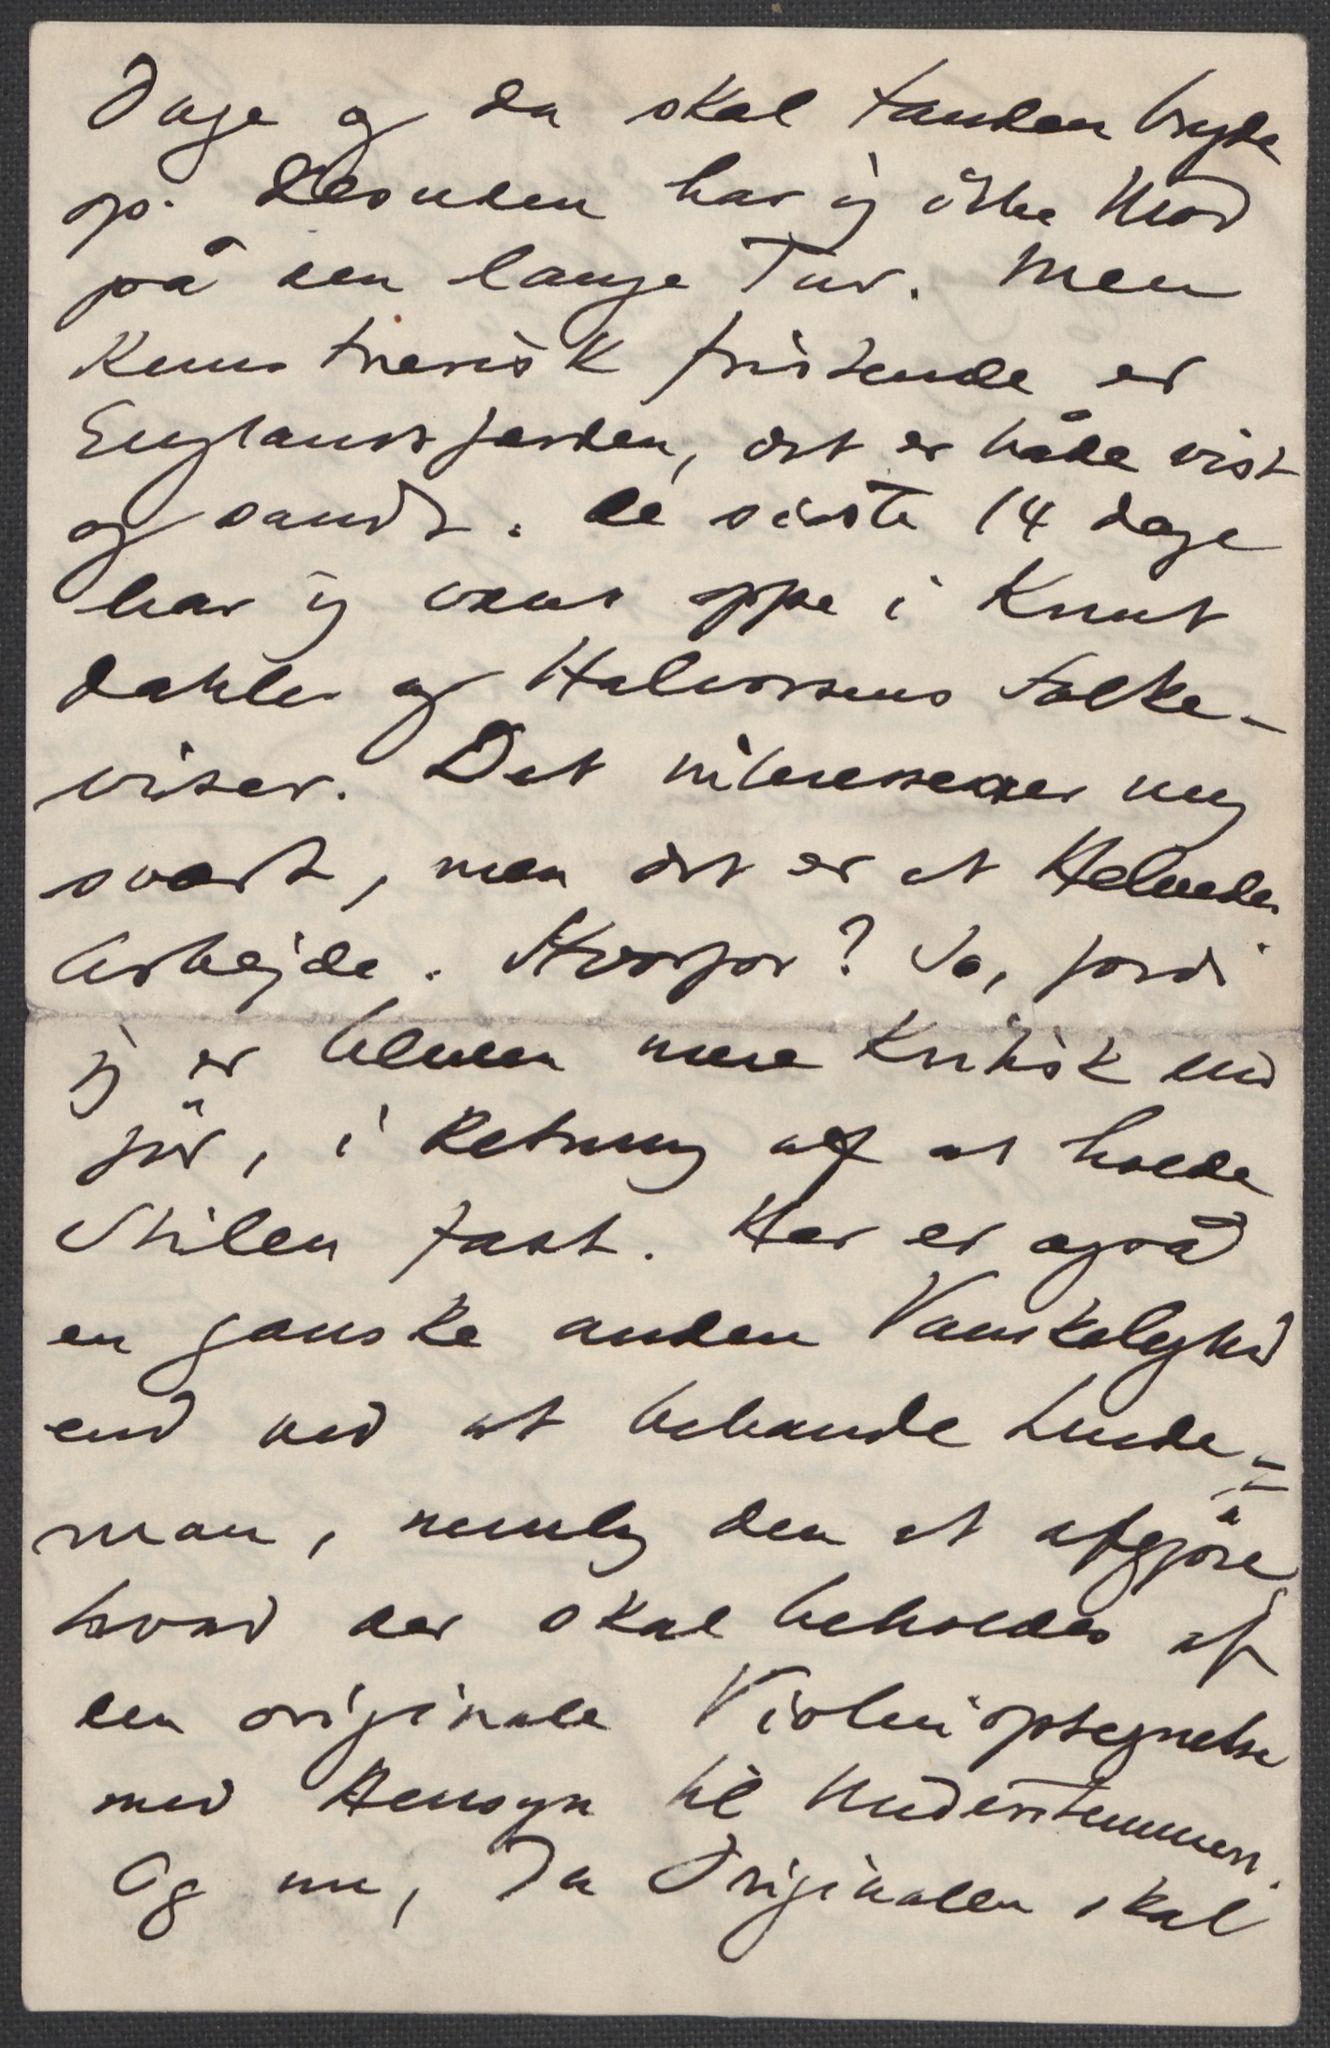 Dage og da skal tanden bryde
op. Desuden har jeg ikke Mod
på den lange Tur. Men
Kunstnerisk fristende er
Englandsfærden, det er både vist
og sandt. De sidste 14 dage
har jeg været oppe i Knut
Dahles og Halvorsens Folke-
viser. Det interesserer mig
svært, men det er et Helvedes
Arbejde. Hvorfor? Jo, fordi
jeg er bleven mere Kritisk end
før, i Retning af at holde
Stilen fast. Her er også
en ganske anden Vanskelighed
end ved at behandle Linde-
man, nemlig den at afgjøre
hvad der skal beholdes af
den originale Violinoptegnelse
med Hensyn til Understemmen.
Og nu, da Originalen skal